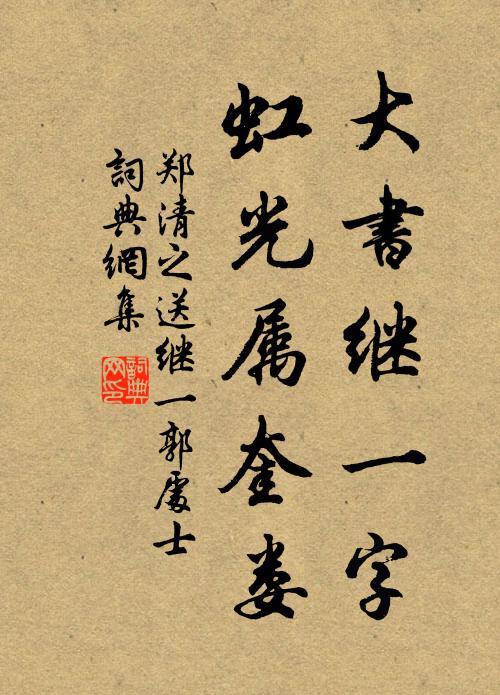 大書继一字
虹光属奎娄
郑清之送继一郭處士
詞典網集
詞典网印